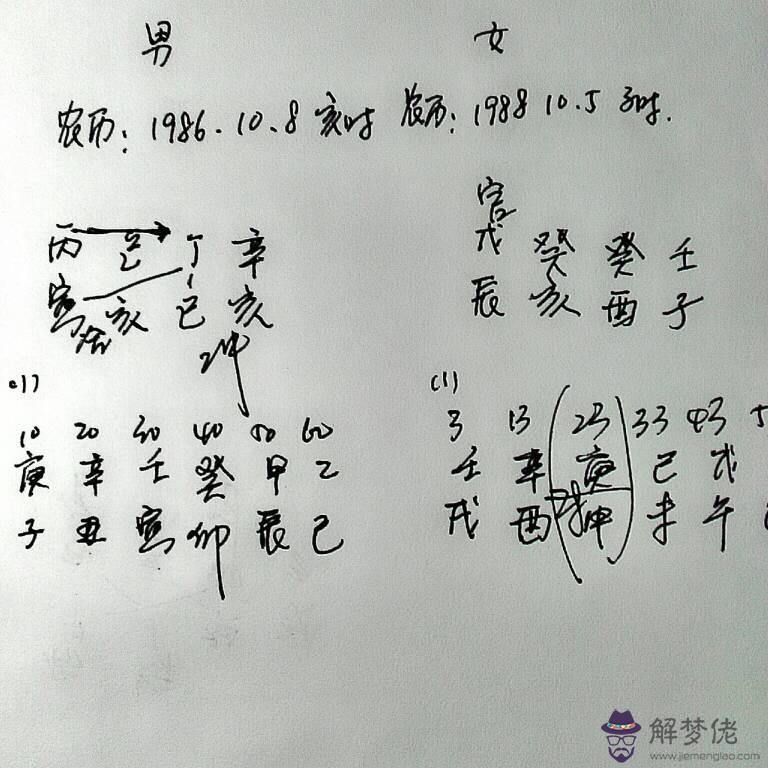 男 女
农历: 1986.10.8 亥时 农历: 1988 10.5 子时.
官
丙 乙 丁 辛 戊 癸 癸 壬
寅 亥 巳 亥 辰 亥 酉 子
合
冲
(1) (1)
10 20 30 40 50 60 3 13 23 33 43 5
庚 辛 壬 癸 甲 乙 壬 辛 庚 己 戊
子 丑 寅 卯 辰 巳 戌 酉 申 未 午
解梦佬
www.jiemenglao.com